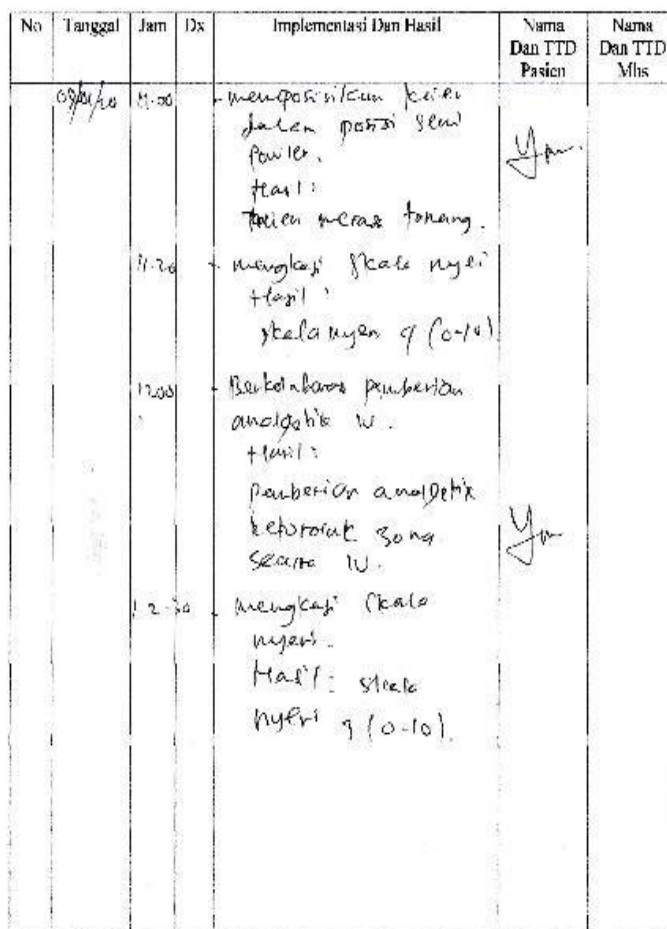 No Tanggal Jam Dx Implementasi Dan Hasil Nama Dan TTD Pasien Nama Dan TTD Mhs
11.00 - memposisikan
dalam posisi semi
fowler.
Hasil:
merasa tenang.
11.20 - mengkaji skala nyeri
Hasil:
skala nyeri (0-10)
12.00 - Berkolaborasi pemberian
analgetik IV.
Hasil:
pemberian analgetik
ketorolak 30 mg
secara IV.
12.30 - mengkaji skala
nyeri.
Hasil: skala
nyeri (0-10).